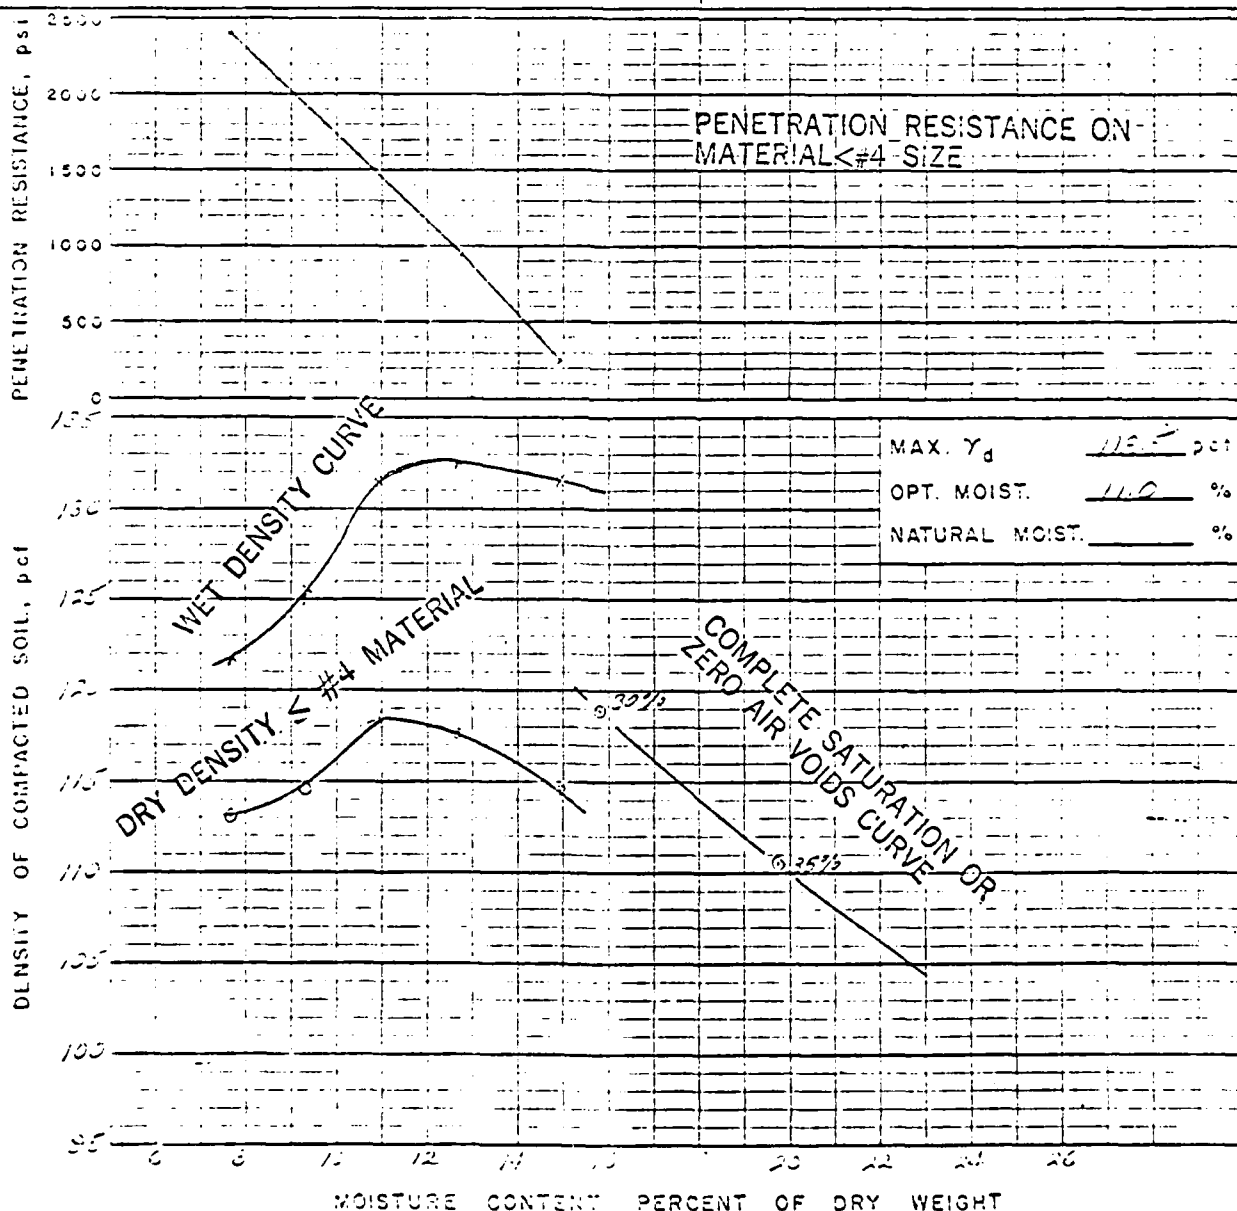 PENETRATION RESISTANCE, psi
2500
2000
1500
1000
500
0
PENETRATION RESISTANCE ON
MATERIAL<#4 SIZE
DENSITY OF COMPACTED SOIL, pcf
135
130
125
120
115
110
105
100
95
WET DENSITY CURVE
DRY DENSITY ≤ #4 MATERIAL
COMPLETE SATURATION OR
ZERO AIR VOIDS CURVE
30%
35%
MAX. γd pcf
OPT. MOIST. 11.0 %
NATURAL MOIST. %
6 8 10 12 14 16 20 22 24 26
MOISTURE CONTENT PERCENT OF DRY WEIGHT